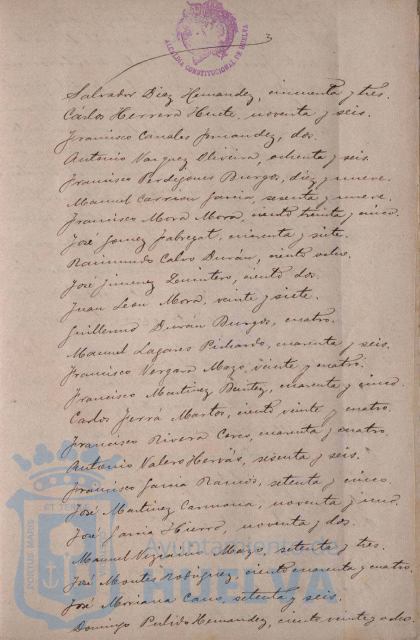 ALCALDIA CONSTITUCIONAL DE HUELVA
3
Salvador Diaz Hernandez, cincuenta y tres.
Cárlos Herrera Huete, noventa y seis.
Francisco Canales Fernandez, dos.
Antonio Vazquez Oliveira, ochenta y seis.
Francisco Perdigones Burgos, diez y nueve.
Manuel Carrion Garcia, sesenta y nueve.
Francisco Mora Mora, ciento treinta y cinco.
José Gomez Fabregat, cuarenta y siete.
Raimundo Calvo Durán, ciento ocho.
José Jimenez ciento dos.
Juan Leon Mora, veinte y siete.
Guillermo Durán Burgos, cuatro.
Manuel Lagares Pichardo, cuarenta y seis.
Francisco Vergara Mazo, veinte y cuatro.
Francisco Martinez Benitez, cuarenta y cinco.
Carlos Ferrá Martos, ciento veinte y cuatro.
Francisco Rivera cuarenta y cuatro.
Antonio Valero Hervás, sesenta y seis.
Francisco Garcia Ramos, setenta y cinco.
José Martinez Carmona, noventa y uno.
José Garcia Hierro, noventa y dos.
Manuel Vizcaino Mazo, setenta y tres.
José Montes Rodriguez, ciento cuarenta y cuatro.
José Moriana Cano, setenta y seis.
Domingo Pulido Hernandez, ciento veinte y ocho
PORTUS MARIS ET TERRÆ
Ayuntamiento de
HUELVA